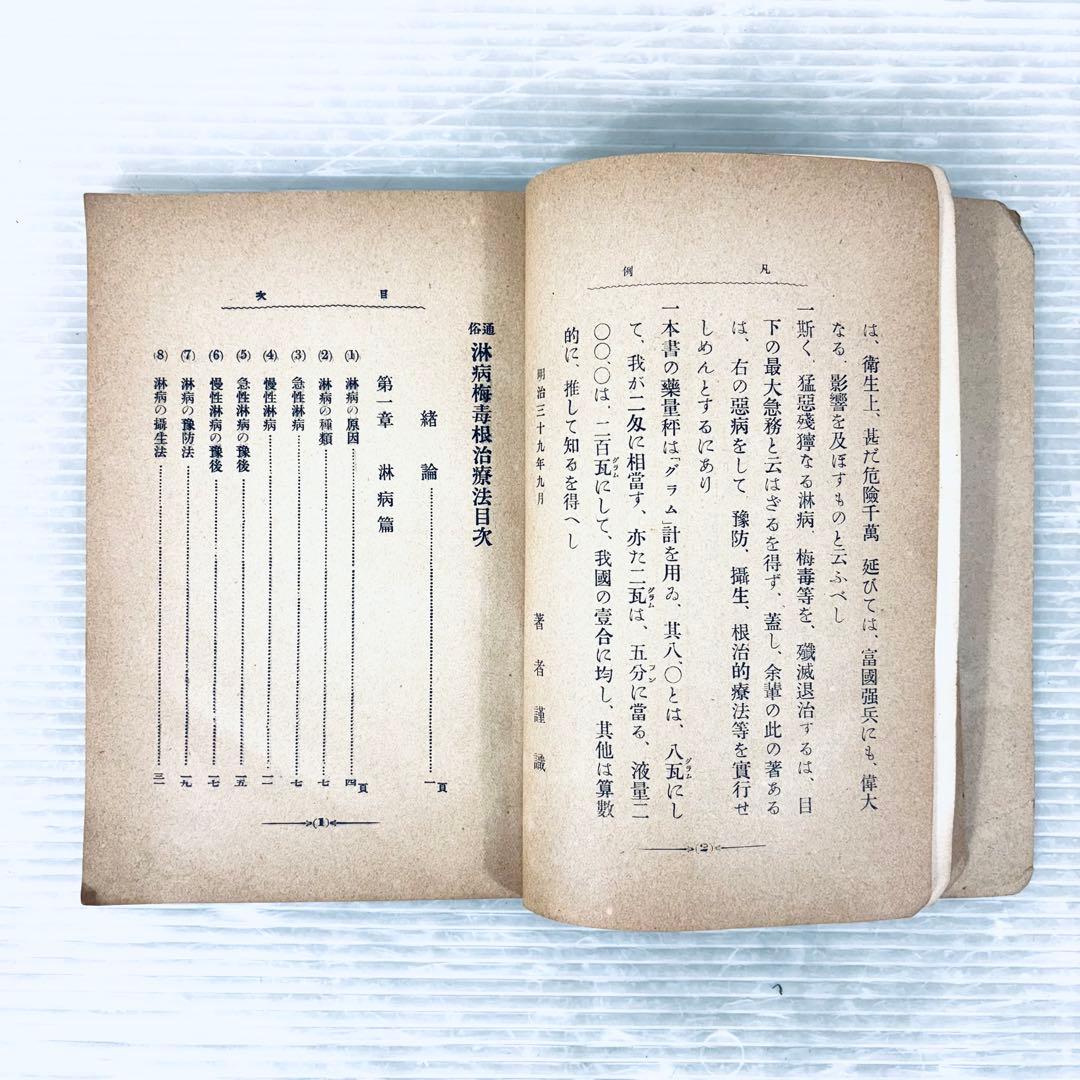 凡例
は、衛生上、甚だ危險千萬、延びては、富國强兵にも、偉大
なる、影響を及ぼすものと云ふべし
一斯く、猛惡殘獰なる淋病、梅毒等を、殲滅退治するは、目
下の最大急務と云はざるを得ず、蓋し、余輩の此の著ある
は、右の惡病をして、豫防、攝生、根治的療法等を實行せ
しめんとするにあり
一本書の藥量秤は「グラム」計を用ゐ、其八、〇とは、八瓦にし
て、我が二匁に相當す、亦た二瓦は、五分に當る、液量二
〇〇、〇は、二百瓦にして、我國の壹合に均し、其他は算數
的に、推して知るを得へし
明治三十九年九月
著者謹識
(2)
目次
通俗 淋病梅毒根治療法目次
緖論……一頁
第一章 淋病篇
(1) 淋病の原因……四頁
(2) 淋病の種類……七
(3) 急性淋病……七
(4) 慢性淋病……一二
(5) 急性淋病の豫後……一五
(6) 慢性淋病の豫後……一七
(7) 淋病の豫防法……一九
(8) 淋病の攝生法……三一
(1)